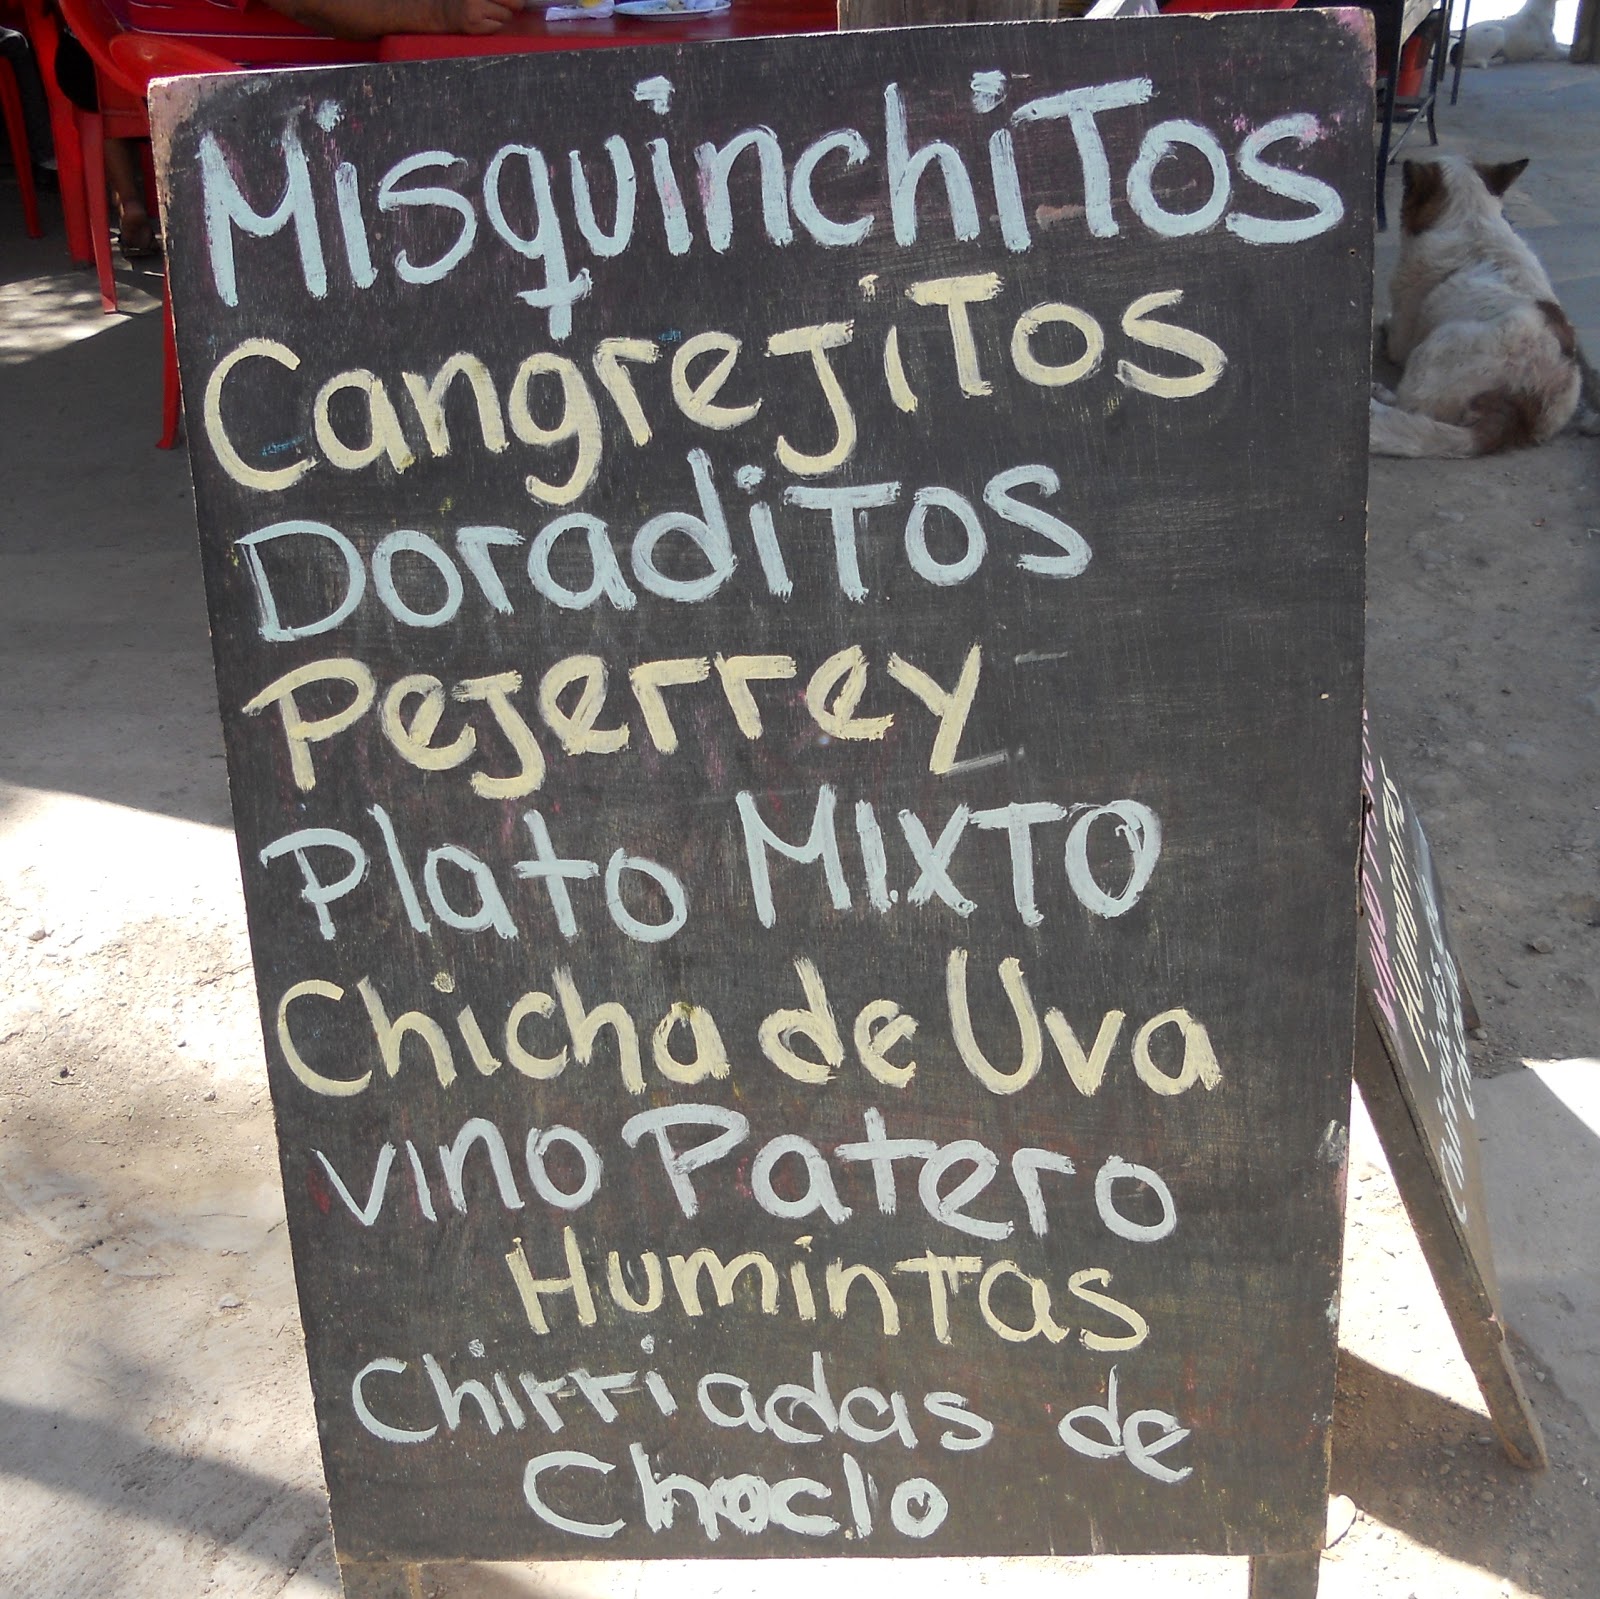 MisquinchiTos
CangrejiTos
DoradiTos
Pejerrey
Plato MIXTO
Chicha de Uva
vino Patero
HuminTas
Chirriadas de
Choclo